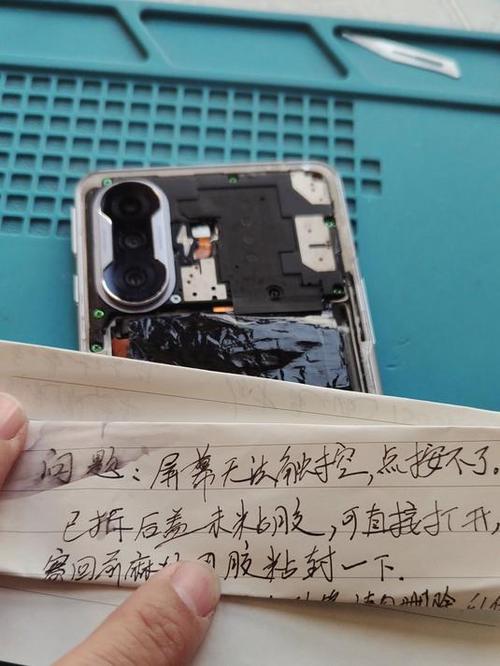 问题：屏幕无法触控，点按不了。
已拆后盖未粘胶，可直接打开，
寄回前麻 用胶粘封一下.
请勿删除